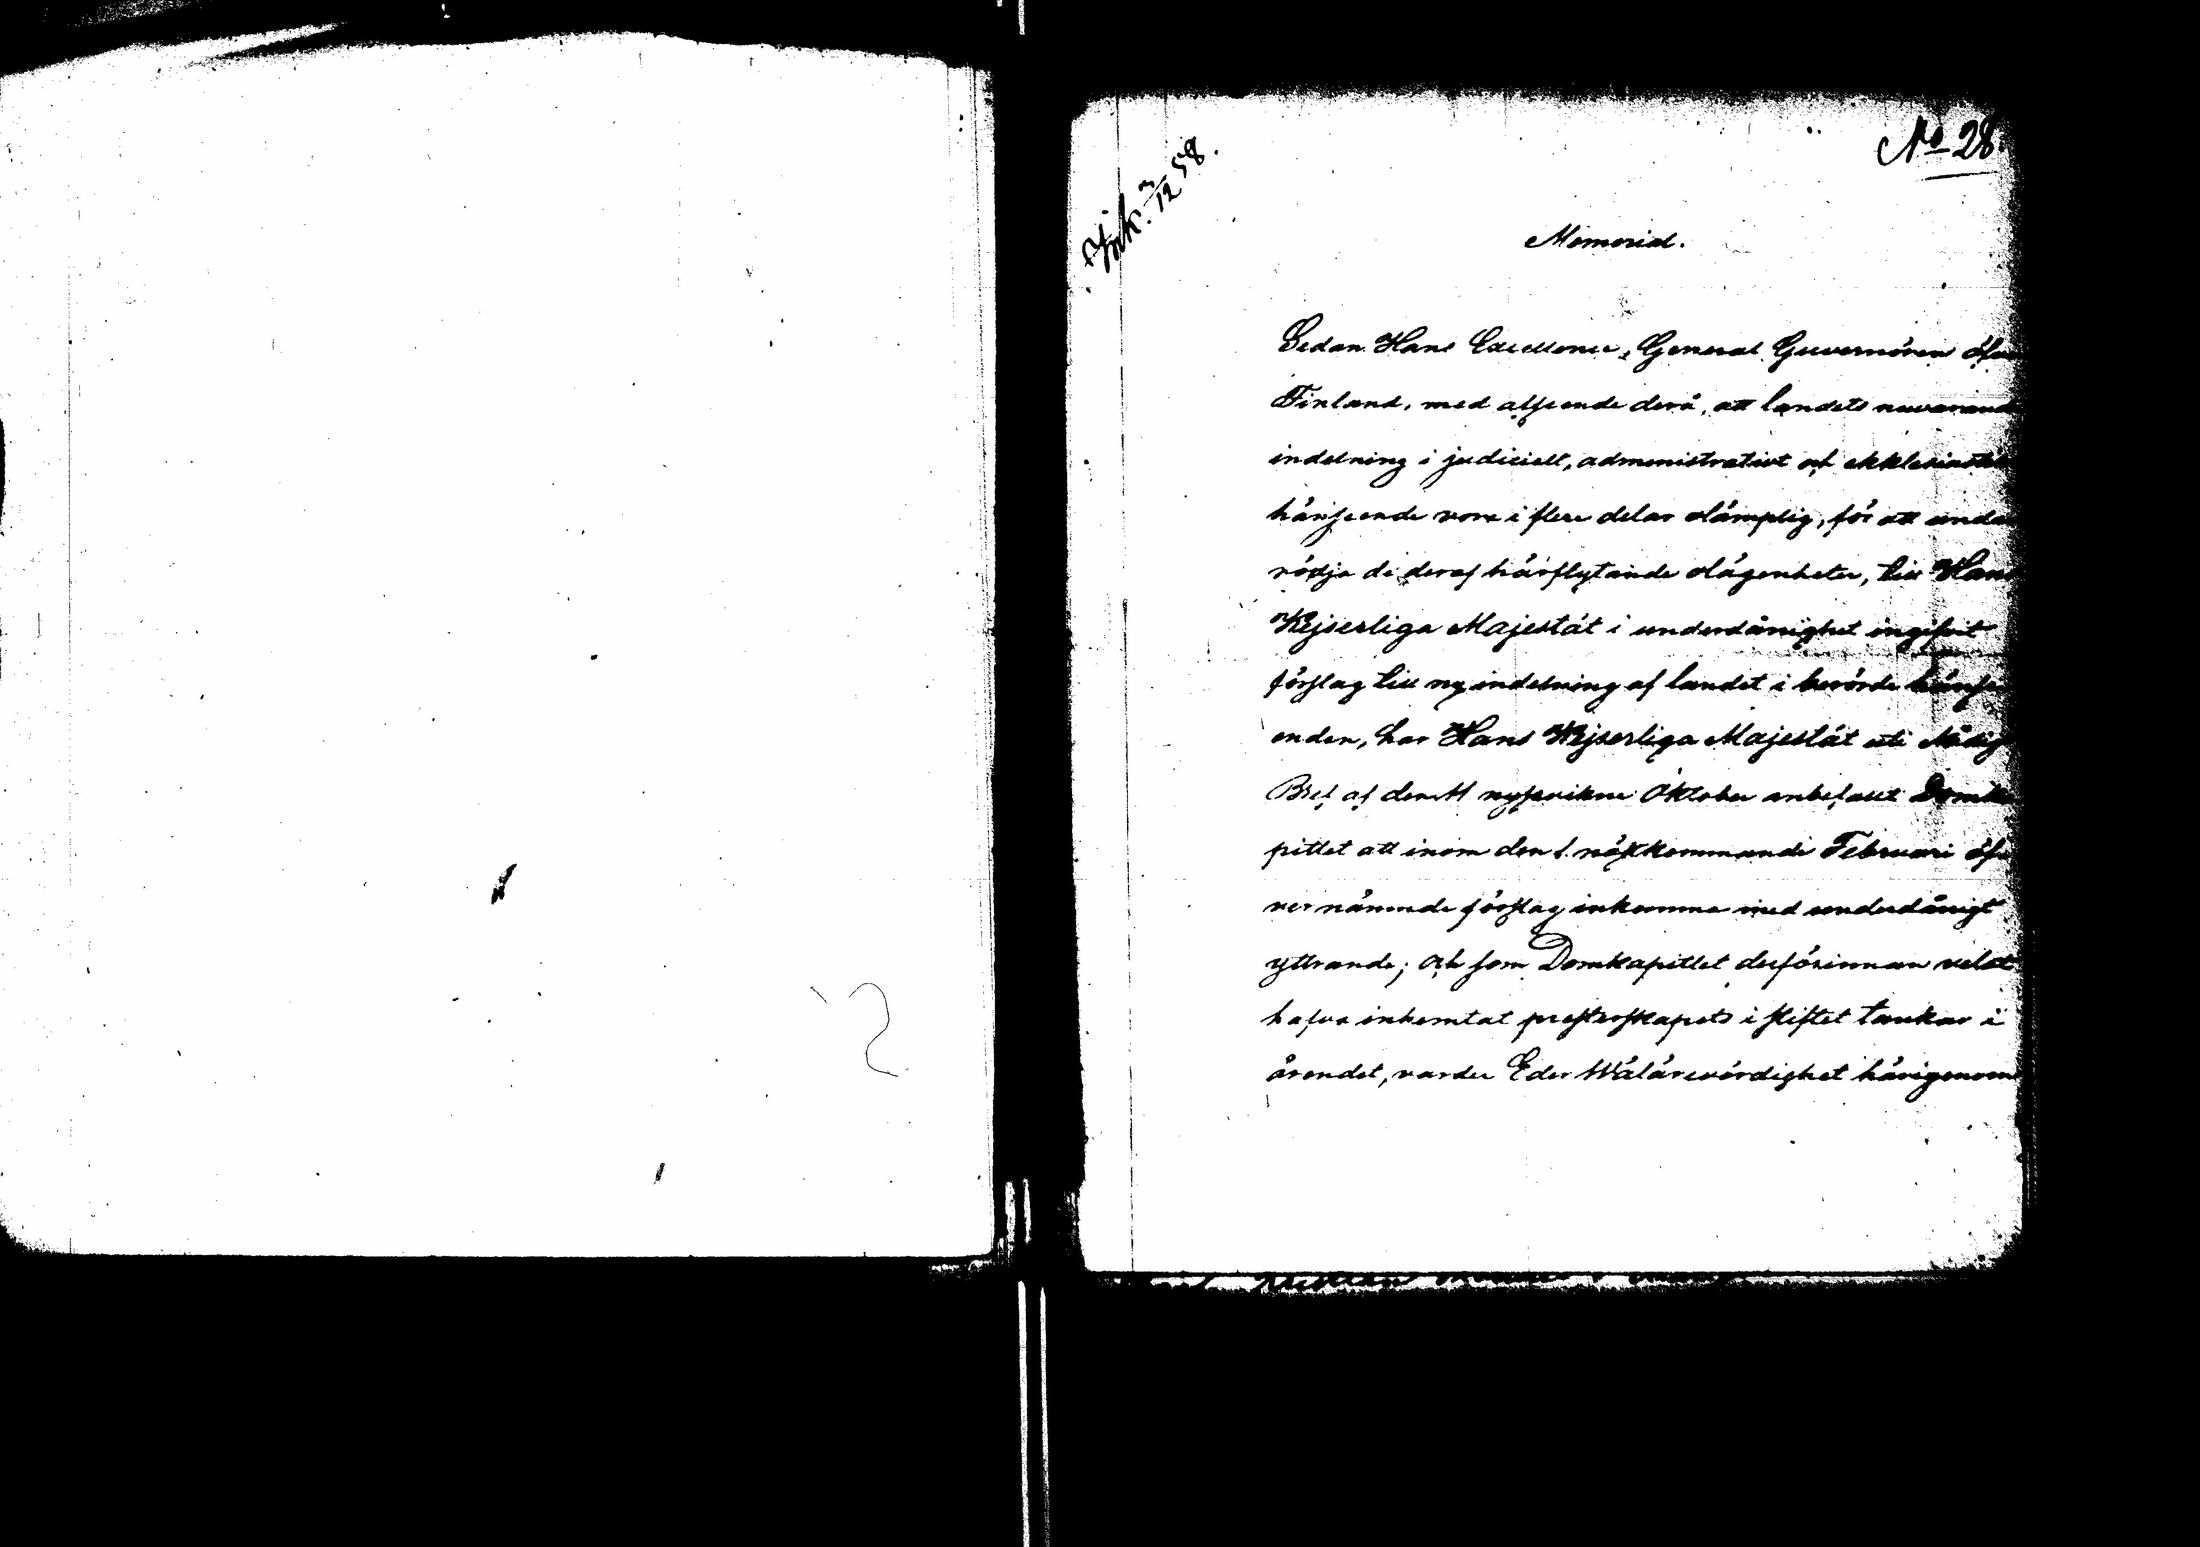 No 28.
Ink. 3/12 58.
Memorial.
Sedan Hans Excellence, General Guvernören öfver
Finland, med afseende derå, att landets nuvarande
indelning i judicielt, administrativt och ekklesiastikt
hänseende vore i flere delar olämplig, för att undan
rödja de deraf härflytande olägenheter, till Hans
Kejserliga Majestät i underdånighet ingifvit
förslag till ny indelning af landet i berörde hänse
enden, har Hans Kejserliga Majestät uti Nådigt
Bref af den 11 nyssvikne Oktober anbefallt Domka
pittet att inom den 1. nästkommande Februari öf
ver nämnde förslag inkomma med underdånigt
yttrande; och som Domkapitlet derförinnan velat
hafva inhemtat presterskapets i stiftet tankar i
ärendet, varder Eder Wälärevördighet härigenom